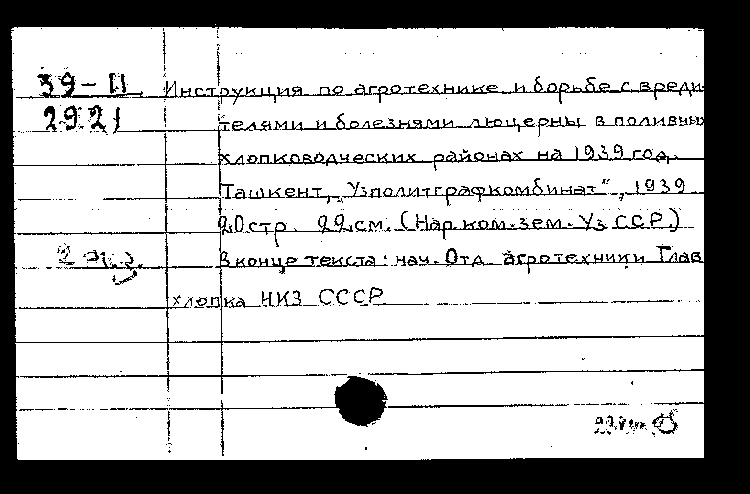 39-II Инструкция по агротехнике и борьбе с вреди
2921 телями и болезнями люцерны в поливных
хлопководческих районах на 1939 год.
Ташкент, „Узполитграфкомбинат“, 1939
20 стр. 22 см. (Нар.ком.зем. Уз ССР.)
2 экз. В конце текста: нач. Отд. агротехники Глав
хлопка НКЗ СССР